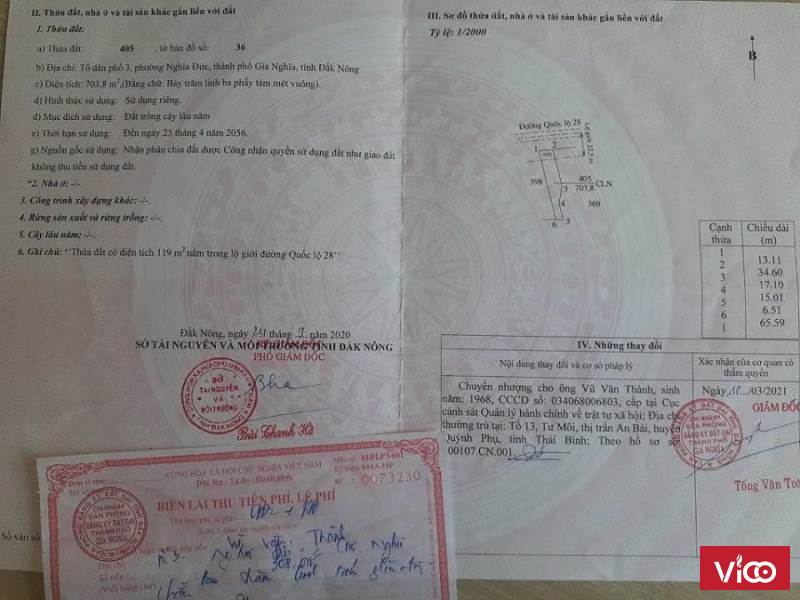 II. Thửa đất, nhà ở và tài sản khác gắn liền với đất
1. Thửa đất:
a) Thửa đất: 405 , tờ bản đồ số: 36
b) Địa chỉ: Tổ dân phố 3, phường Nghĩa Đức, thành phố Gia Nghĩa, tỉnh Đắk Nông
c) Diện tích: 703,8 m²,(Bằng chữ: Bảy trăm linh ba phẩy tám mét vuông).
d) Hình thức sử dụng: Sử dụng riêng.
đ) Mục đích sử dụng: Đất trồng cây lâu năm
e) Thời hạn sử dụng: Đến ngày 25 tháng 4 năm 2056.
g) Nguồn gốc sử dụng: Nhận phân chia đất được Công nhận quyền sử dụng đất như giao đất
không thu tiền sử dụng đất.
"2. Nhà ở: -/-.
3. Công trình xây dựng khác: -/-.
4. Rừng sản xuất và rừng trồng: -/-.
5. Cây lâu năm: -/-.
6. Ghi chú: ''Thửa đất có diện tích 119 m² nằm trong lộ giới đường Quốc lộ 28''
Đắk Nông, ngày tháng năm 2020
SỞ TÀI NGUYÊN VÀ MÔI TRƯỜNG TỈNH ĐẮK NÔNG
PHÓ GIÁM ĐỐC
SỞ
TÀI NGUYÊN
VÀ
MÔI TRƯỜNG
Bùi Thanh Hà
III. Sơ đồ thửa đất, nhà ở và tài sản khác gắn liền với đất
Tỷ lệ: 1/2000
B
Đường Quốc lộ 28
Lộ giới 22,5 m
1 2
398
405
703,8
CLN
3
4
369
6 5
Cạnh thửa
Chiều dài (m)
1
13.11
2
34.60
3
17.10
4
15.01
5
6.51
6
65.59
1
IV. Những thay đổi
Nội dung thay đổi và cơ sở pháp lý
Xác nhận của cơ quan có
thẩm quyền
Chuyển nhượng cho ông Vũ Văn Thành, sinh
năm: 1968, CCCD số: 034068006803, cấp tại Cục
cảnh sát Quản lý hành chính về trật tự xã hội; Địa chỉ
thường trú tại: Tổ 13, Tư Môi, thị trấn An Bài, huyện
Quỳnh Phụ, tỉnh Thái Bình: Theo hồ sơ số
00107.CN.001.
Ngày /03/2021
GIÁM ĐỐC
CHI NHÁNH
VĂN PHÒNG
ĐĂNG KÝ ĐẤT ĐAI
GIA NGHĨA
Tống Văn Toà
CỘNG HÒA XÃ HỘI CHỦ NGHĨA VIỆT NAM
Độc lập - Tự do - Hạnh phúc
Mẫu số: 01BLP3-001
Ký hiệu:
Số : 0073230
BIÊN LAI THU TIỀN PHÍ, LỆ PHÍ
Tên loại phí, lệ phí:
CHI NHÁNH
VĂN PHÒNG
ĐĂNG KÝ ĐẤT ĐAI
THÀNH PHỐ
GIA NGHĨA
Địa chỉ:
Số tiền:
(Viết bằng chữ)
Số vào sổ
VICO